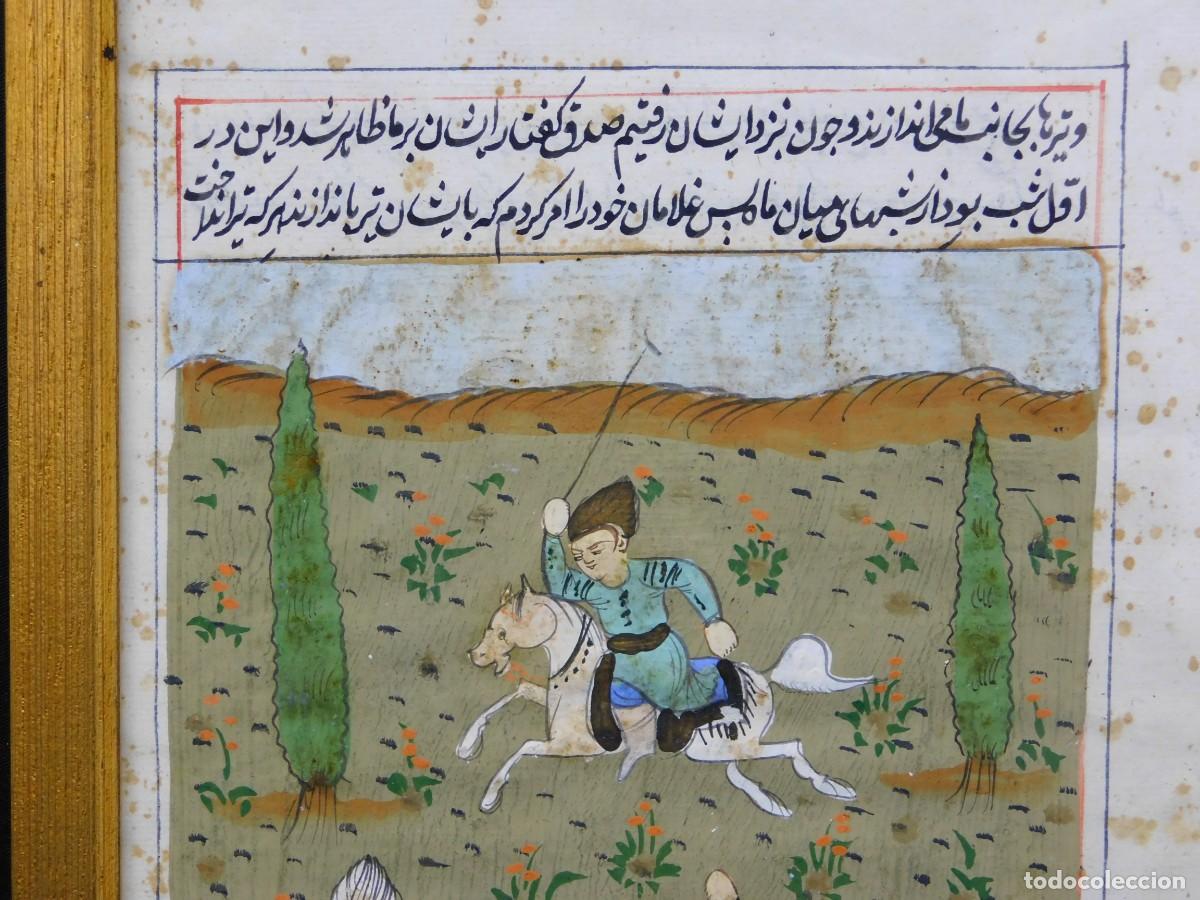 و تیرها بجانب ما می اندازند و چون نزد ایشان رفتیم صدق گفتار ایشان بر ما ظاهر شد و این در
اوّل شب بود از شبهای میان ماه پس غلامان خود را امر کردم که بایشان تیر باندازند هر که تیر انداخت
todocoleccion